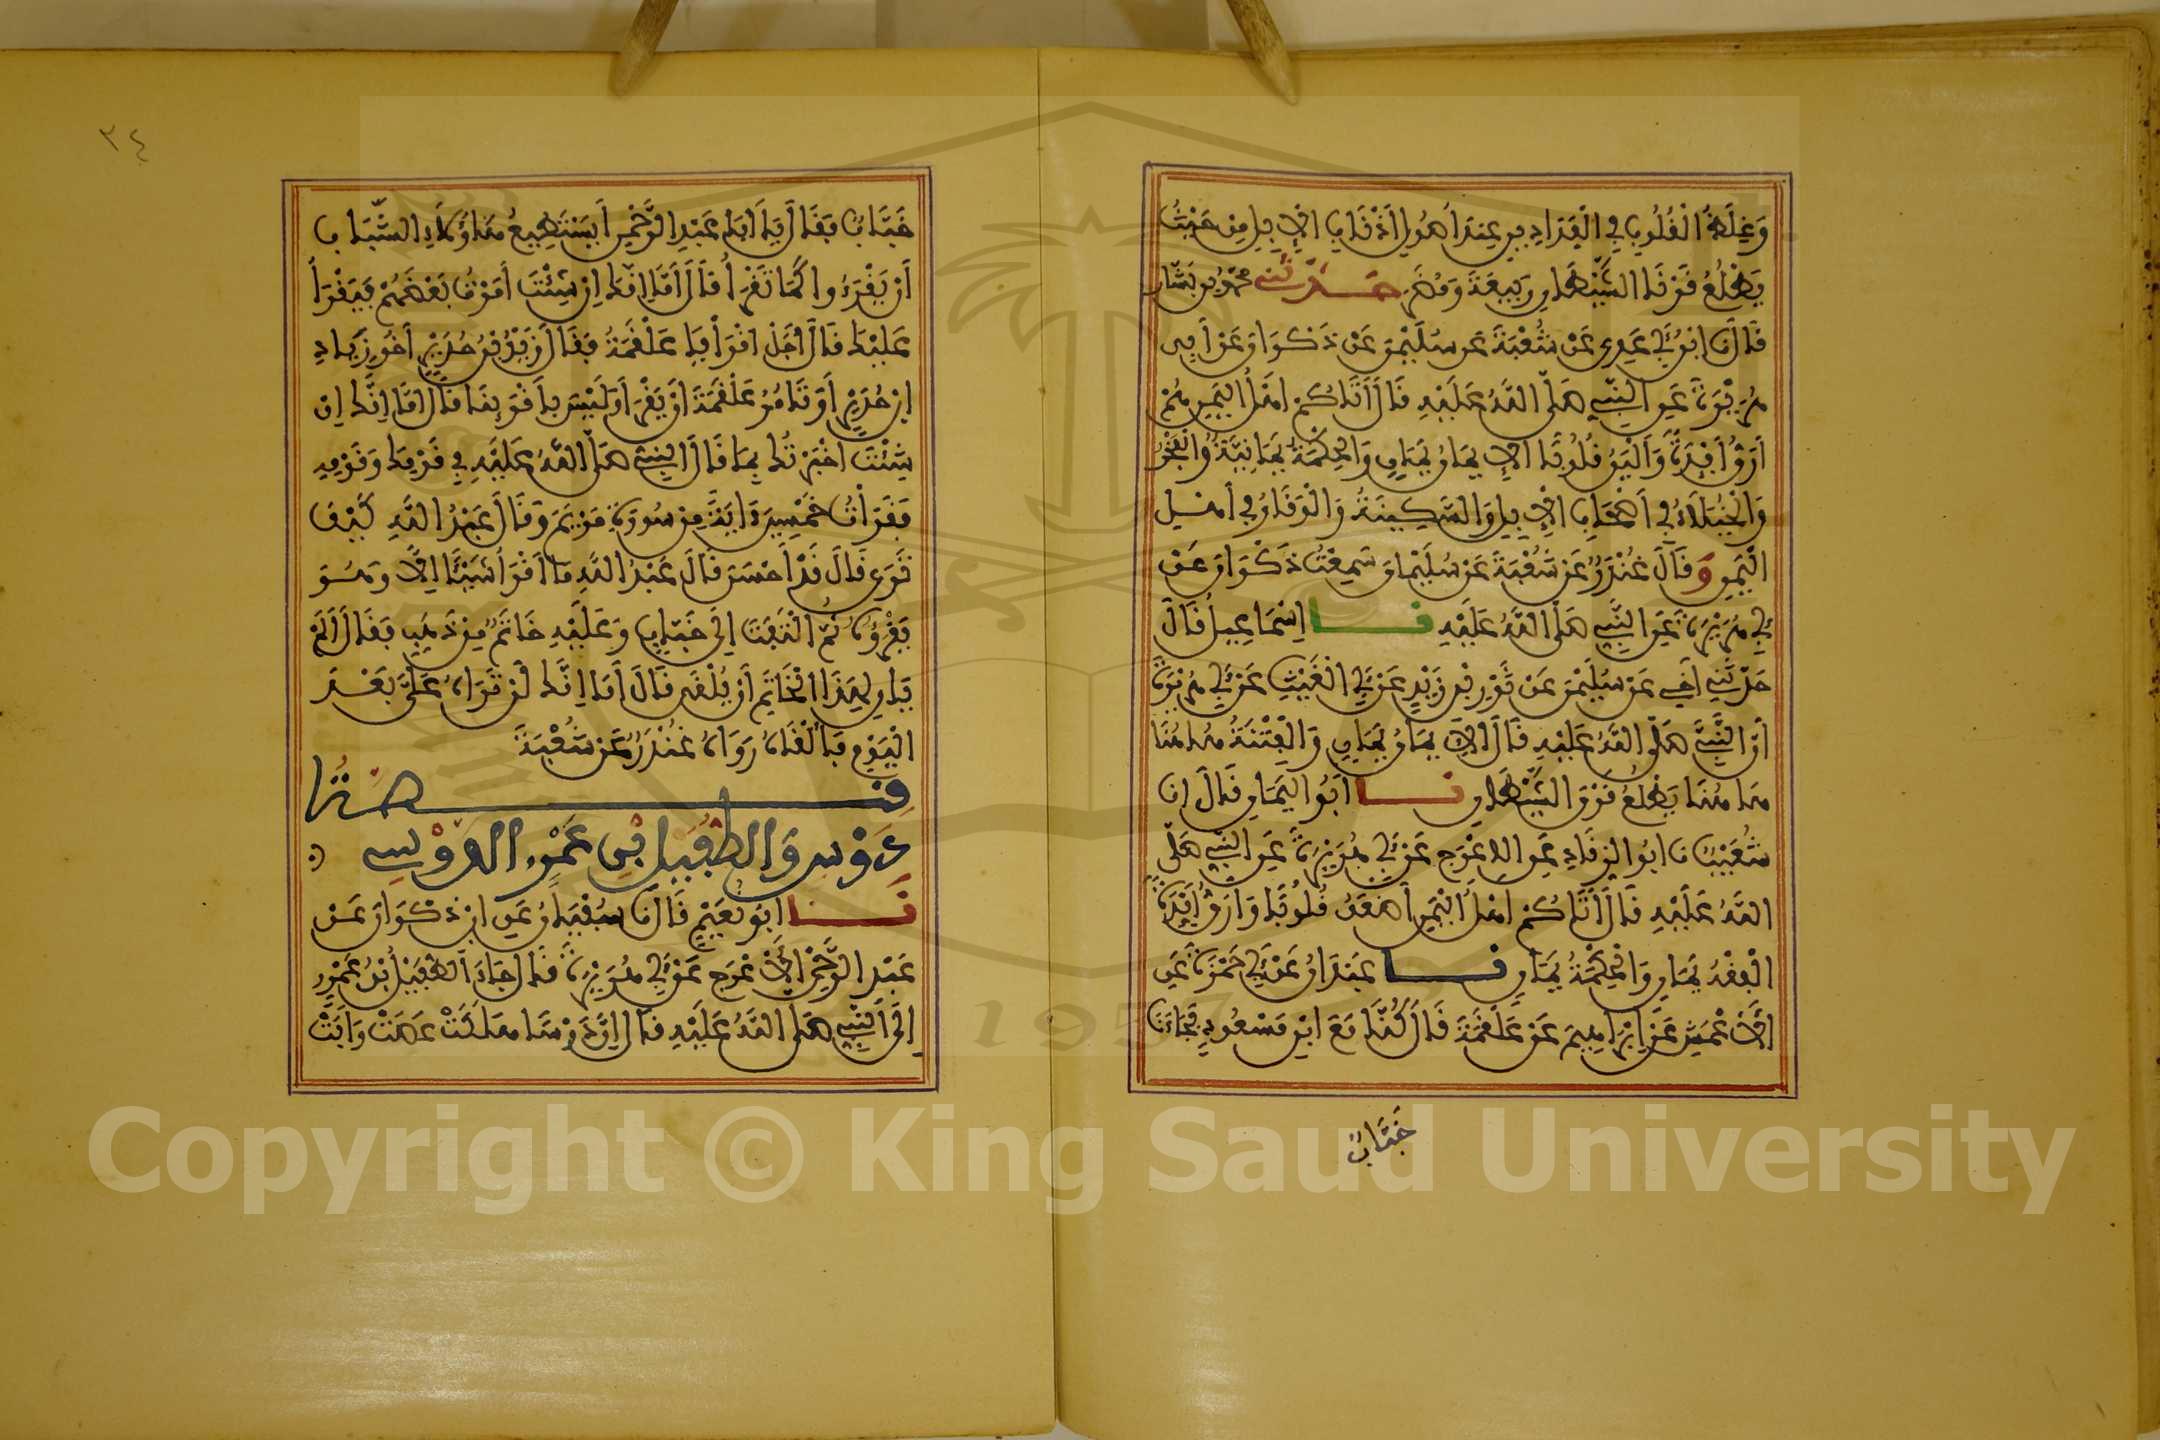 وَغِلَظُ الْقُلُوبِ فِي الْفَدَّادِينَ عِندَ أُصُولِ أَذْنَابِ الْإِبِلِ مِنْ حَيْثُ
يَطْلُعُ قَرْنَا الشَّيْطَانِ رَبِيعَةَ وَمُضَرَ حَدَّثَنِي مُحَمَّدُ بْنُ بَشَّارٍ
قَالَ نَا ابْنُ أَبِي عَدِيٍّ عَنْ شُعْبَةَ عَن سُلَيْمَنَ عَنْ ذَكْوَانَ عَنْ أَبِي
هُرَيْرَةَ عَنِ النَّبِيِّ صَلَّى اللَّهُ عَلَيْهِ قَالَ أَتَاكُمْ أَهْلُ الْيَمَنِ هُمْ
أَرَقُّ أَفْئِدَةً وَأَلْيَنُ قُلُوبًا الْإِيمَانُ يَمَانٍ وَالْحِكْمَةُ يَمَانِيَّةٌ وَالْفَخْرُ
وَالْخُيَلَاءُ فِي أَصْحَابِ الْإِبِلِ وَالسَّكِينَةُ وَالْوَقَارُ فِي أَهْلِ
الْغَنَمِ وَقَالَ غُنْدَرٌ عَنْ شُعْبَةَ عَنْ سُلَيْمَانَ سَمِعْتُ ذَكْوَانَ عَنْ
أَبِي هُرَيْرَةَ عَنِ النَّبِيِّ صَلَّى اللَّهُ عَلَيْهِ نَا إِسْمَاعِيلُ قَالَ
حَدَّثَنِي أَخِي عَنْ سُلَيْمَنَ عَنْ ثَوْرِ بْنِ زَيْدٍ عَنْ أَبِي الْغَيْثِ عَنْ أَبِي هُرَيْرَةَ
أَنَّ النَّبِيَّ صَلَّى اللَّهُ عَلَيْهِ قَالَ الْإِيمَانُ يَمَانٍ وَالْفِتْنَةُ هَاهُنَا
هَاهُنَا يَطْلُعُ قَرْنُ الشَّيْطَانِ نَا أَبُو الْيَمَانِ قَالَ نَا
شُعَيْبٌ نَا أَبُو الزِّنَادِ عَنِ الْأَعْرَجِ عَنْ أَبِي هُرَيْرَةَ عَنِ النَّبِيِّ صَلَّى
اللَّهُ عَلَيْهِ قَالَ أَتَاكُمْ أَهْلُ الْيَمَنِ أَضْعَفُ قُلُوبًا وَأَرَقُّ أَفْئِدَةً
الْفِقْهُ يَمَانٍ وَالْحِكْمَةُ يَمَانٍ نَا عَبْدَانُ عَنْ أَبِي حَمْزَةَ عَنِ
الْأَعْمَشِ عَنْ إِبْرَاهِيمَ عَنْ عَلْقَمَةَ قَالَ كُنَّا مَعَ ابْنِ مَسْعُودٍ فَجَاءَنَا
خَبَّابٌ
٣٤
خَبَّابٌ فَقَالَ يَا أَبَا عَبْدِ الرَّحْمَنِ أَيَسْتَطِيعُ هَاؤُلَاءِ الشَّبَابُ
أَنْ يَقْرَءُوا كَمَا تَقْرَأُ قَالَ أَمَا إِنَّكَ إِنْ شِئْتَ أَمَرْتُ بَعْضَهُمْ فَيَقْرَأُ
عَلَيْكَ قَالَ أَجَلْ اقْرَأْ يَا عَلْقَمَةُ فَقَالَ زَيْدُ بْنُ حُدَيْرٍ أَخُو زِيَادِ
ابْنِ حُدَيْرٍ أَوَتَأْمُرُ عَلْقَمَةَ أَنْ يَقْرَأَ وَلَيْسَ بِأَقْرَئِنَا قَالَ أَمَا إِنَّكَ إِنْ
شِئْتَ أَخْبَرْتُكَ بِمَا قَالَ النَّبِيُّ صَلَّى اللَّهُ عَلَيْهِ فِي قَوْمِكَ وَقَوْمِهِ
فَقَرَأْتُ خَمْسِينَ آيَةً مِنْ سُورَةِ مَرْيَمَ وَقَالَ عَبْدُ اللَّهِ كَيْفَ
تَرَى قَالَ قَدْ أَحْسَنَ قَالَ عَبْدُ اللَّهِ مَا أَقْرَأُ شَيْئًا إِلَّا وَهُوَ
يَقْرَؤُهُ ثُمَّ الْتَفَتَ إِلَى خَبَّابٍ وَعَلَيْهِ خَاتَمٌ مِنْ ذَهَبٍ فَقَالَ أَلَمْ
يَانِ لِهَذَا الْخَاتَمِ أَنْ يُلْقَى قَالَ أَمَا إِنَّكَ لَنْ تَرَاهُ عَلَيَّ بَعْدَ
الْيَوْمِ فَأَلْقَاهُ رَوَاهُ غُنْدَرٌ عَنْ شُعْبَةَ
قِصَّةُ
دَوْسٍ وَالطُّفَيْلِ بْنِ عَمْرٍو الدَّوْسِيِّ
نَا أَبُو نُعَيْمٍ قَالَ نَا سُفْيَانُ عَنِ ابْنِ ذَكْوَانَ عَنْ
عَبْدِ الرَّحْمَنِ الْأَعْرَجِ عَنْ أَبِي هُرَيْرَةَ قَالَ جَاءَ الطُّفَيْلُ بْنُ عَمْرٍو
إِلَى النَّبِيِّ صَلَّى اللَّهُ عَلَيْهِ قَالَ إِنَّ دَوْسًا هَلَكَتْ عَصَتْ وَأَبَتْ
Copyright © King Saud University
1957